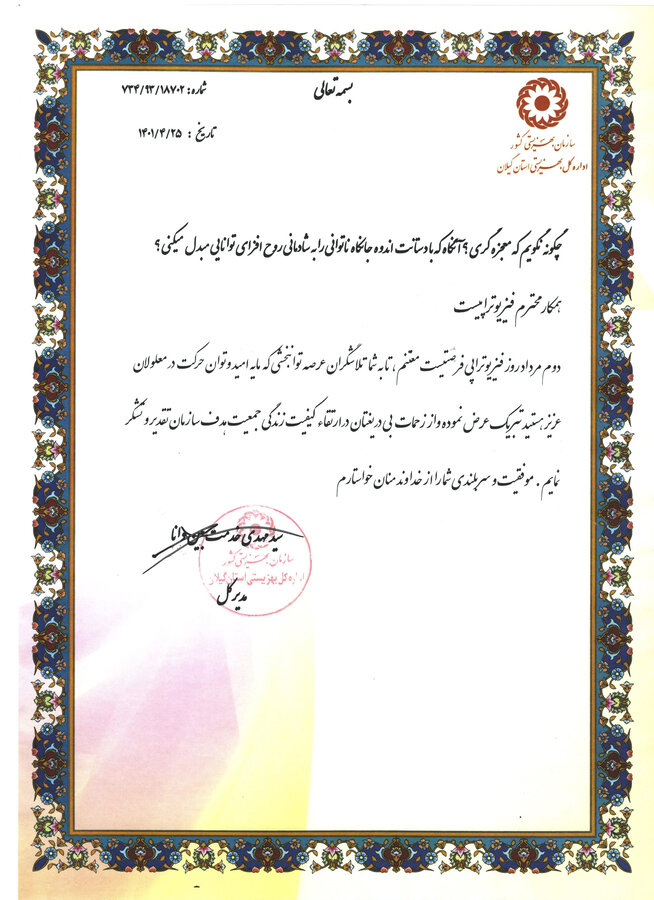 بسمه تعالی
شماره: ۷۳۴/۹۳/۱۸۷۰۲
تاریخ : ۱۴۰۱/۴/۲۵
سازمان بهزیستی کشور
اداره کل بهزیستی استان گیلان
چگونه نگویم که معجزه گری؟ آنگاه که با دستانت اندوه جانکاه ناتوانی را به شادمانی روح افزای توانایی مبدل میکنی؟
همکار محترم فیزیوتراپیست
دوم مرداد روز فیزیوتراپی فرصتیست مغتنم، تا به شما تلاشگران عرصه توانبخشی که مایه امید و توان حرکت در معلولان
عزیز هستید تبریک عرض نموده و از زحمات بی دریغتان در ارتقاء کیفیت زندگی جمعیت هدف سازمان تقدیر و تشکر
نمایم . موفقیت و سربلندی شما را از خداوند منان خواستارم
سید مهدی خدمت بین دانا
سازمان بهزیستی کشور
اداره کل بهزیستی استان گیلان
مدیرکل